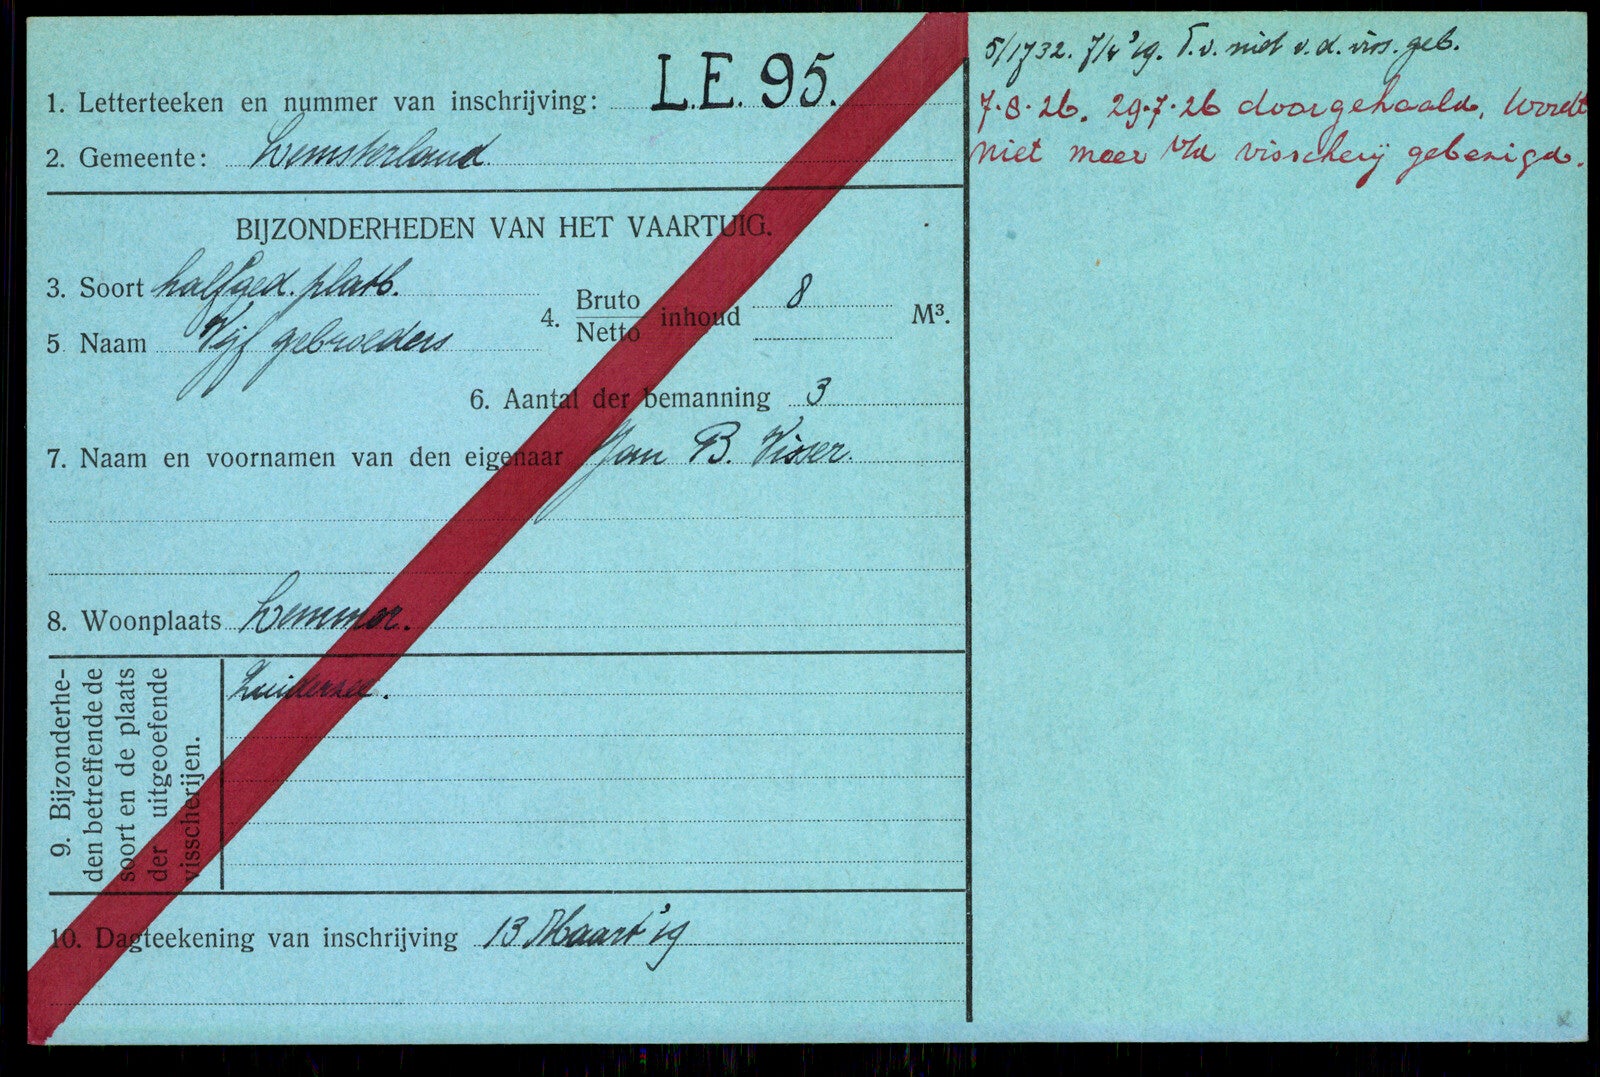 1. Letterteeken en nummer van inschrijving: L.E. 95.
2. Gemeente: Lemsterland
BIJZONDERHEDEN VAN HET VAARTUIG.
3. Soort halfged. platb.
4. Bruto Netto inhoud 8 M³.
5 Naam Vijf gebroeders
6. Aantal der bemanning 3
7. Naam en voornamen van den eigenaar Jan B. Visser.
8. Woonplaats Lemmer.
9. Bijzonderhe-
den betreffende de
soort en de plaats
der uitgeoefende
visscherijen.
Zuiderzee.
10. Dagteekening van inschrijving 13 Maart '19
5/1732. 7/4 '19. T.v. niet v.d. viss. geb.
7.8.26. 29.7.26 doorgehaald, wordt
niet meer v/d visscherij gebezigd.